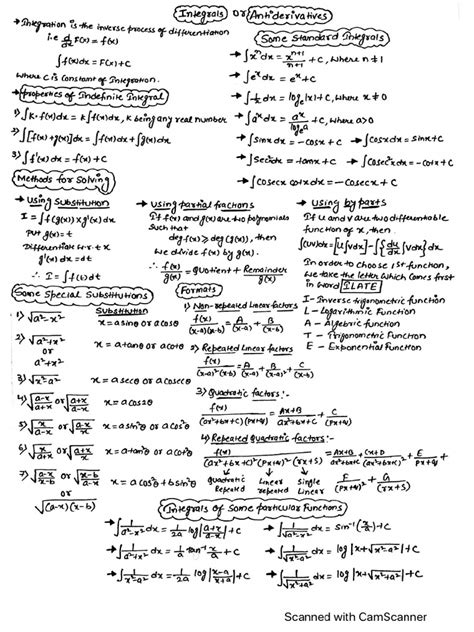 Integrals or Antiderivatives
→ Integration is the inverse process of differentiation
i.e d/dx F(x) = f(x)
∫f(x)dx = F(x) + C
where C is constant of Integration.
→ Properties of Indefinite Integral
1) ∫K·f(x)dx = K∫f(x)dx, K being any real number
2) ∫[f(x)+g(x)]dx = ∫f(x)dx + ∫g(x)dx
3) ∫f'(x)dx = f(x) + C
Some Standard Integrals
→ ∫xⁿdx = xⁿ⁺¹/n+1 + C, where n ≠ 1
→ ∫eˣdx = eˣ + C
→ ∫1/x dx = logₑ|x| + C, where x ≠ 0
→ ∫aˣdx = aˣ/logₑa + C, where a>0
→ ∫sinxdx = -cosx + C → ∫cosxdx = sinx + C
→ ∫sec²xdx = tanx + C → ∫cosec²xdx = -cotx + C
→ ∫cosecx cotxdx = -cosecx + C
Methods for Solving
→ Using Substitution
I = ∫f(g(x)) × g'(x)dx
Put g(x) = t
Differentiate w.r.t x
g'(x)dx = dt
∴ I = ∫f(t)dt
→ Using partial fractions
If f(x) and g(x) are two polynomials
such that
deg f(x) ≥ deg (g(x)), then
we divide f(x) by g(x).
∴ f(x)/g(x) = quotient + Remainder/g(x)
→ Using by parts
If u and v are two differentiable
function of x, then
∫(uv)dx = [u∫vdx] - ∫{du/dx ∫vdx}dx
In order to choose 1st function,
we take the letter which comes first
in word ILATE
I - Inverse trigonometric function
L - Logarithmic Function
A - Algebric function
T - Trigonometric Function
E - Exponential Function
Some Special Substitutions
Substitution
1) √a²-x² x = a sinθ or a cosθ
2) √a²+x² or a²+x² x = a tanθ or a cotθ
3) √x²-a² x = a secθ or a cosecθ
4) √a-x/a+x or √a+x/a-x x = a cos2θ
5) √x/a-x or √a-x/x x = a sin²θ or a cos²θ
6) √x/a+x or √a+x/x x = a tan²θ or a cot²θ
7) √a-x/x-b or √x-b/a-x or √(a-x)(x-b) x = a cos²θ + b sin²θ
Formats
1) Non-repeated Linear factors
f(x)/(x-a)(x-b) = A/(x-a) + B/(x-b)
2) Repeated Linear factors
f(x)/(x-a)²(x-b) = A/(x-a) + B/(x-a)² + C/(x-b)
3) Quadratic factors :-
f(x)/(ax²+bx+c)(px+q) = Ax+B/ax²+bx+c + C/px+q
4) Repeated Quadratic factors :-
f(x)/(ax²+bx+c)²(px+q)²(rx+s) = Ax+B/ax²+bx+c + Cx+D/(ax²+bx+c)² + E/px+q +
F/(px+q)² + G/(rx+s)
quadratic Repeated Linear repeated Single Linear
Integrals of Some particular Functions
→ ∫1/a²-x² dx = 1/2a log|a+x/a-x| + C → ∫1/√a²-x² dx = sin⁻¹(x/a) + C
→ ∫1/a²+x² dx = 1/a tan⁻¹ x/a + C → ∫1/√x²-a² dx = log|x+√x²-a²| + C
→ ∫1/x²-a² dx = 1/2a log|x-a/x+a| + C → ∫1/√x²+a² dx = log|x+√x²+a²| + C
Scanned with CamScanner